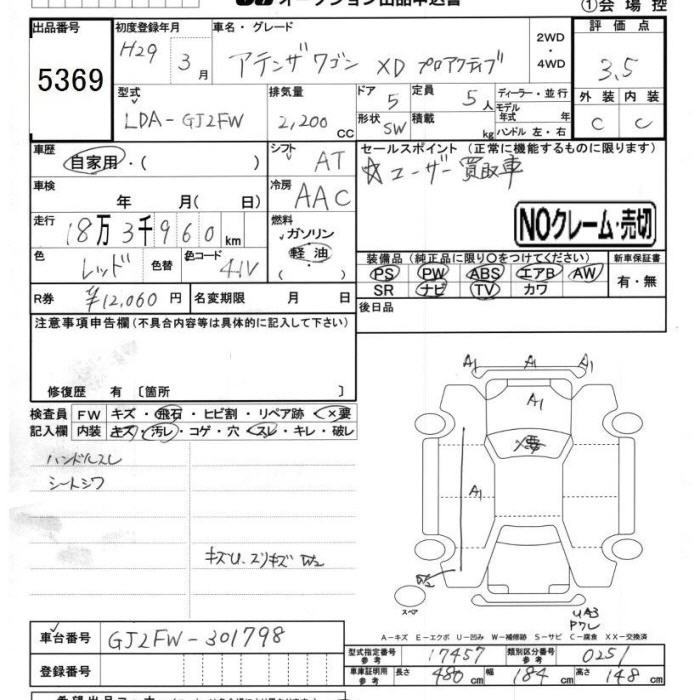 オークション出品申込書
①会場控
出品番号
5369
初度登録年月
H29 3月
車名・グレード
アテンザワゴン XD プロアクティブ
2WD
・
4WD
評価点
3.5
型式
LDA-GJ2FW
排気量
2,200 CC
ドア 5
定員 5人
形状 SW
積載 kg
ディーラー・並行
モデル年式 年
ハンドル 左・右
外装 内装
C C
車歴
自家用・( )
シフト AT
セールスポイント (正常に機能するものに限ります)
☆ユーザー買取車
車検 年 月( 日)
冷房 AAC
NOクレーム・売切
走行 18万3千960km
燃料
ガソリン
軽油
色 レッド 色替
色コード 41V
装備品 (純正品に限り○をつけてください)
新車保証書
PS PW ABS エアB AW
有・無
SR ナビ TV カワ
R券 ¥12,060円
名変期限 月 日
後日品
注意事項申告欄 (不具合内容等は具体的に記入して下さい)
修復歴 有 〔箇所 〕
検査員
記入欄
FW キズ・飛石・ヒビ割・リペア跡 ×要
内装 キズ・汚レ・コゲ・穴・スレ・キレ・破レ
ハンドルスレ
シートシワ
キズU.スリキズ W2
A1 A1 A1
A1
×要
A1
W2
スペア
UA3
Pワレ
A-キズ E-エクボ U-凹み W-補修跡 S-サビ C-腐食 XX-交換済
車台番号 GJ2FW-301798
登録番号
型式指定番号
参考
17457
類別区分番号
参考
0251
車庫証明用
参考
長さ 480cm
幅 184cm
高さ 148cm